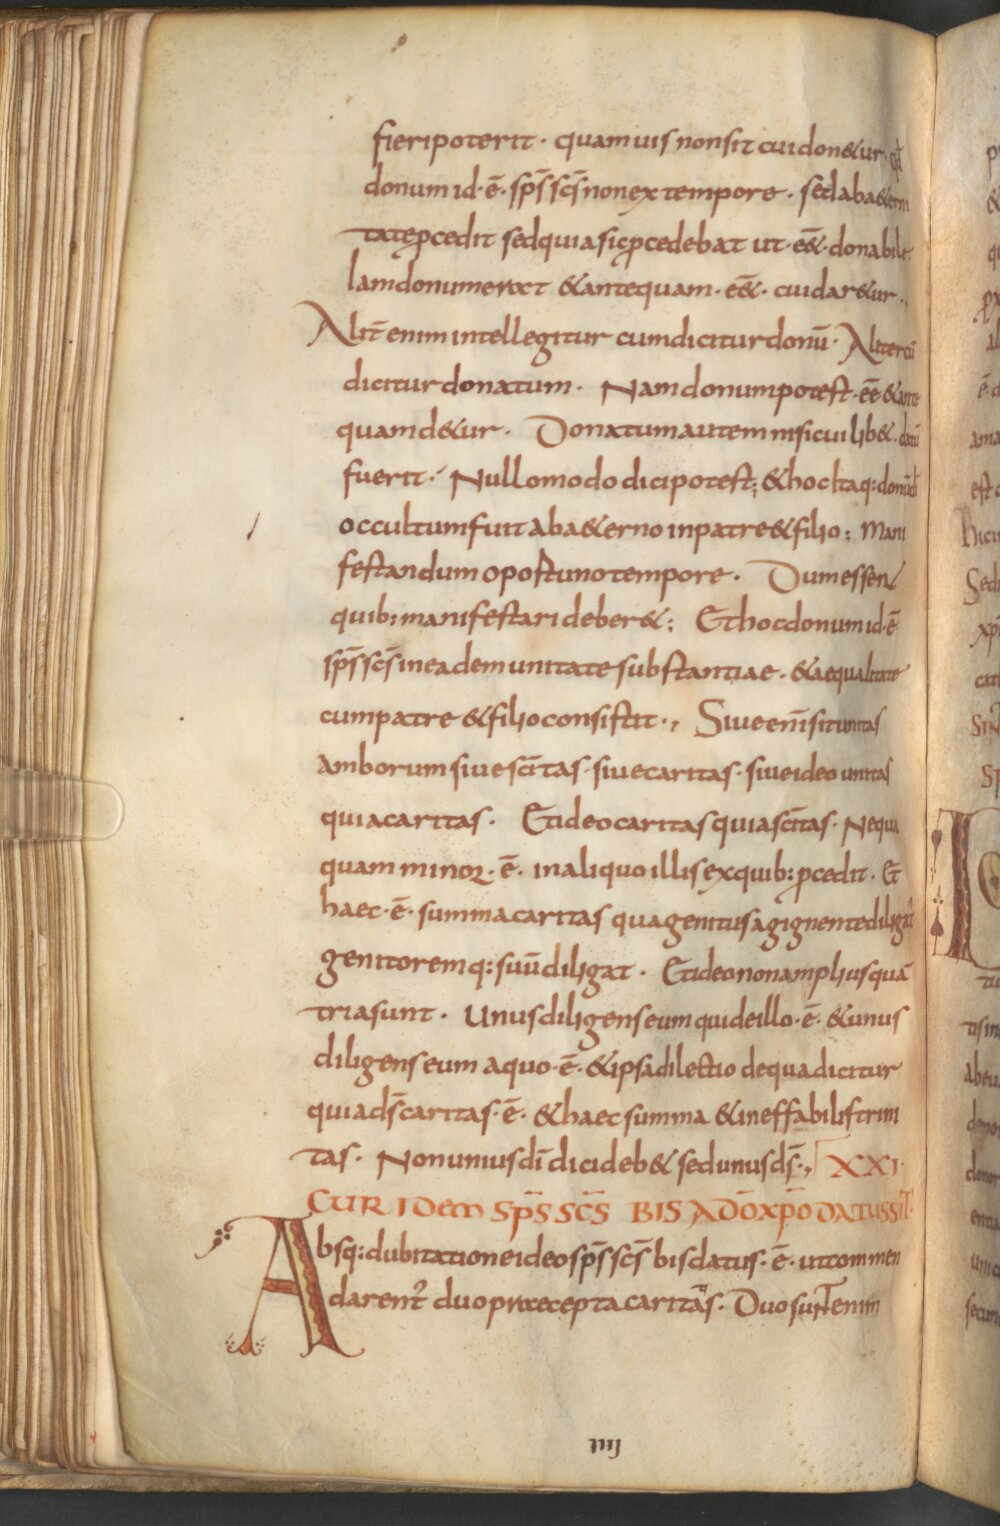 fieri poterit · quamuis non sit cui don&ur · qđ
donum id · ē · sp̄s sc̄s non ex tempore · sed aba&erni
tate p̄cedit sed quia sic p̄cedebat ut · eē& · donabile
Iam donum erat & antequam · eē& · cui dar&ur ·
Alit̄ enim intellegitur cum dicitur donū · Aliter cū
dicitur donatum · Nam donum potest · eē & ante
quam d&ur · Donatum autem nisi cui lib& · datū
fuerit · Nullo modo dici potest ; & hoc itaq: donū
occultum fuit aba&erno in patre & filio ; Mani
festandum oportuno tempore · Dum essent
quib: manifestari deber& ; Et hoc donum id · ē
sp̄s sc̄s in eadem unitate substantiae · & aequalitate
cum patre & filio consistit · , Siue eni sit unitas
amborum siue sc̄itas · siue caritas · siue ideo unitas
quia caritas · Et ideo caritas quia sc̄itas · Nequa
quam minor · ē · in aliquo illis ex quib: p̄cedit · Et
haec · ē · summa caritas qua genitus a gignente diligat᷑
genitoremq: suū diligat · Et ideo non amplius quā
tria sunt · Unus diligens eum qui de illo · ē · & unus
diligens eum a quo · ē · & ipsa dilectio de qua dicitur
quia ds̄ caritas · ē · & haec summa & ineffabilis trini
tas · Non unius dī dici deb& sed unus ds̄ · , XXI ·
CUR IDEM SP̄S SC̄S BIS A DŌ XP̄O DATUS SIT ·
Absq: dubitatione ideo sp̄s sc̄s bis datus · ē · ut commen
darent᷑ duo praecepta caritatis · Duo sunt enim
IIII